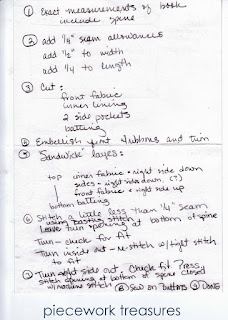 ① Exact measurements of book
include spine
② add 1/4" seam allowances
add 1/2" to width
add 1/4 to length
③ Cut:
front fabric
inner lining
2 side pockets
batting
④ Embellish front ribbons and trim
⑤ "Sandwich" layers:
top inner fabric - right side down
sides - right side down, (?)
front fabric - right side up
bottom batting
⑥ Stitch a little less than 1/4" seam
using basting stitch
Leave turn opening at bottom of spine
Turn - check for fit
Turn inside out - re-stitch w/ tight stitch
to fit
⑦ Turn right side out. Check fit. Press.
stitch opening at bottom of spine closed
w/ machine stitch ⑧ Sew on buttons ⑨ DONE
piecework treasures